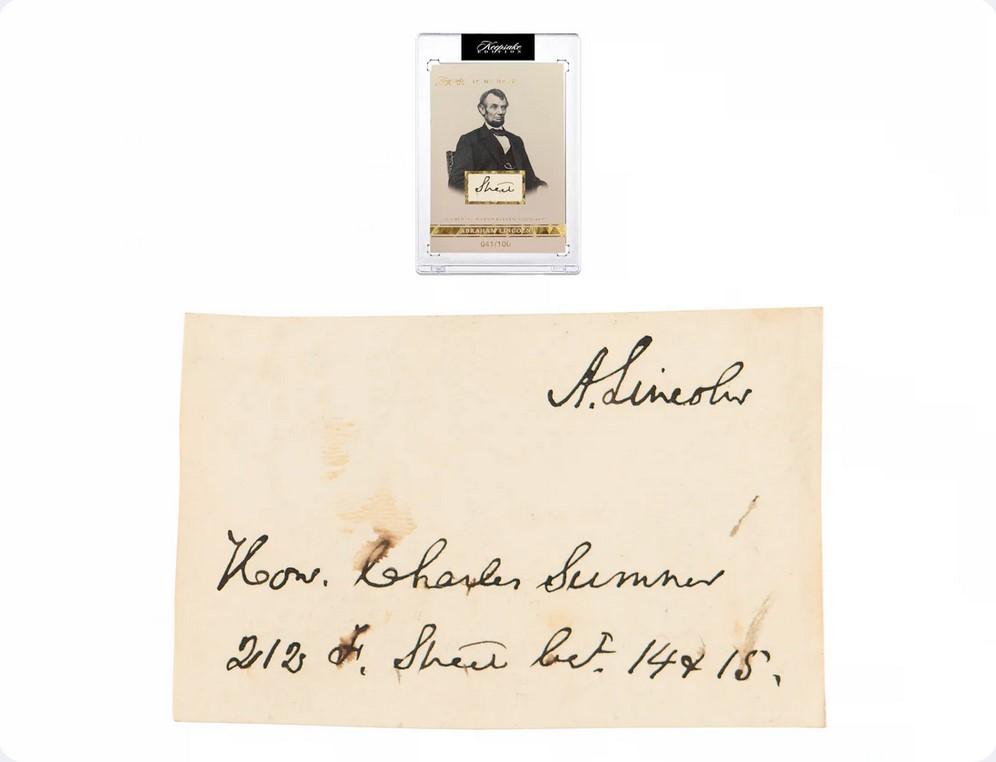 Keepsake
EDITION
Street
ABRAHAM LINCOLN
041/100
A. Lincoln
Hon. Charles Sumner
212 F. Street bet. 14 & 15.